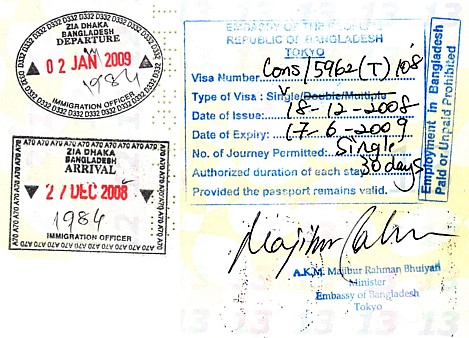 ZIA DHAKA
BANGLADESH
DEPARTURE
02 JAN 2009
1984
IMMIGRATION OFFICER
D332 D332 D332 D332 D332 D332 D332 D332
ZIA DHAKA
BANGLADESH
ARRIVAL
27 DEC 2008
1984
IMMIGRATION OFFICER
A70 A70 A70 A70 A70 A70 A70 A70
EMBASSY OF THE PEOPLE'S
REPUBLIC OF BANGLADESH
TOKYO
Visa Number Cons/5962(T)/08
Type of Visa : Single/Double/Multiple
Date of Issue: 18-12-2008
Date of Expiry: 17-6-2009
No. of Journey Permitted: Single
Authorized duration of each stay 30 days
Provided the passport remains valid.
Employment in Bangladesh
Paid or Unpaid Prohibited
Majibur Rahman
A.K.M. Majibur Rahman Bhuiyan
Minister
Embassy of Bangladesh
Tokyo
13 13 13 13